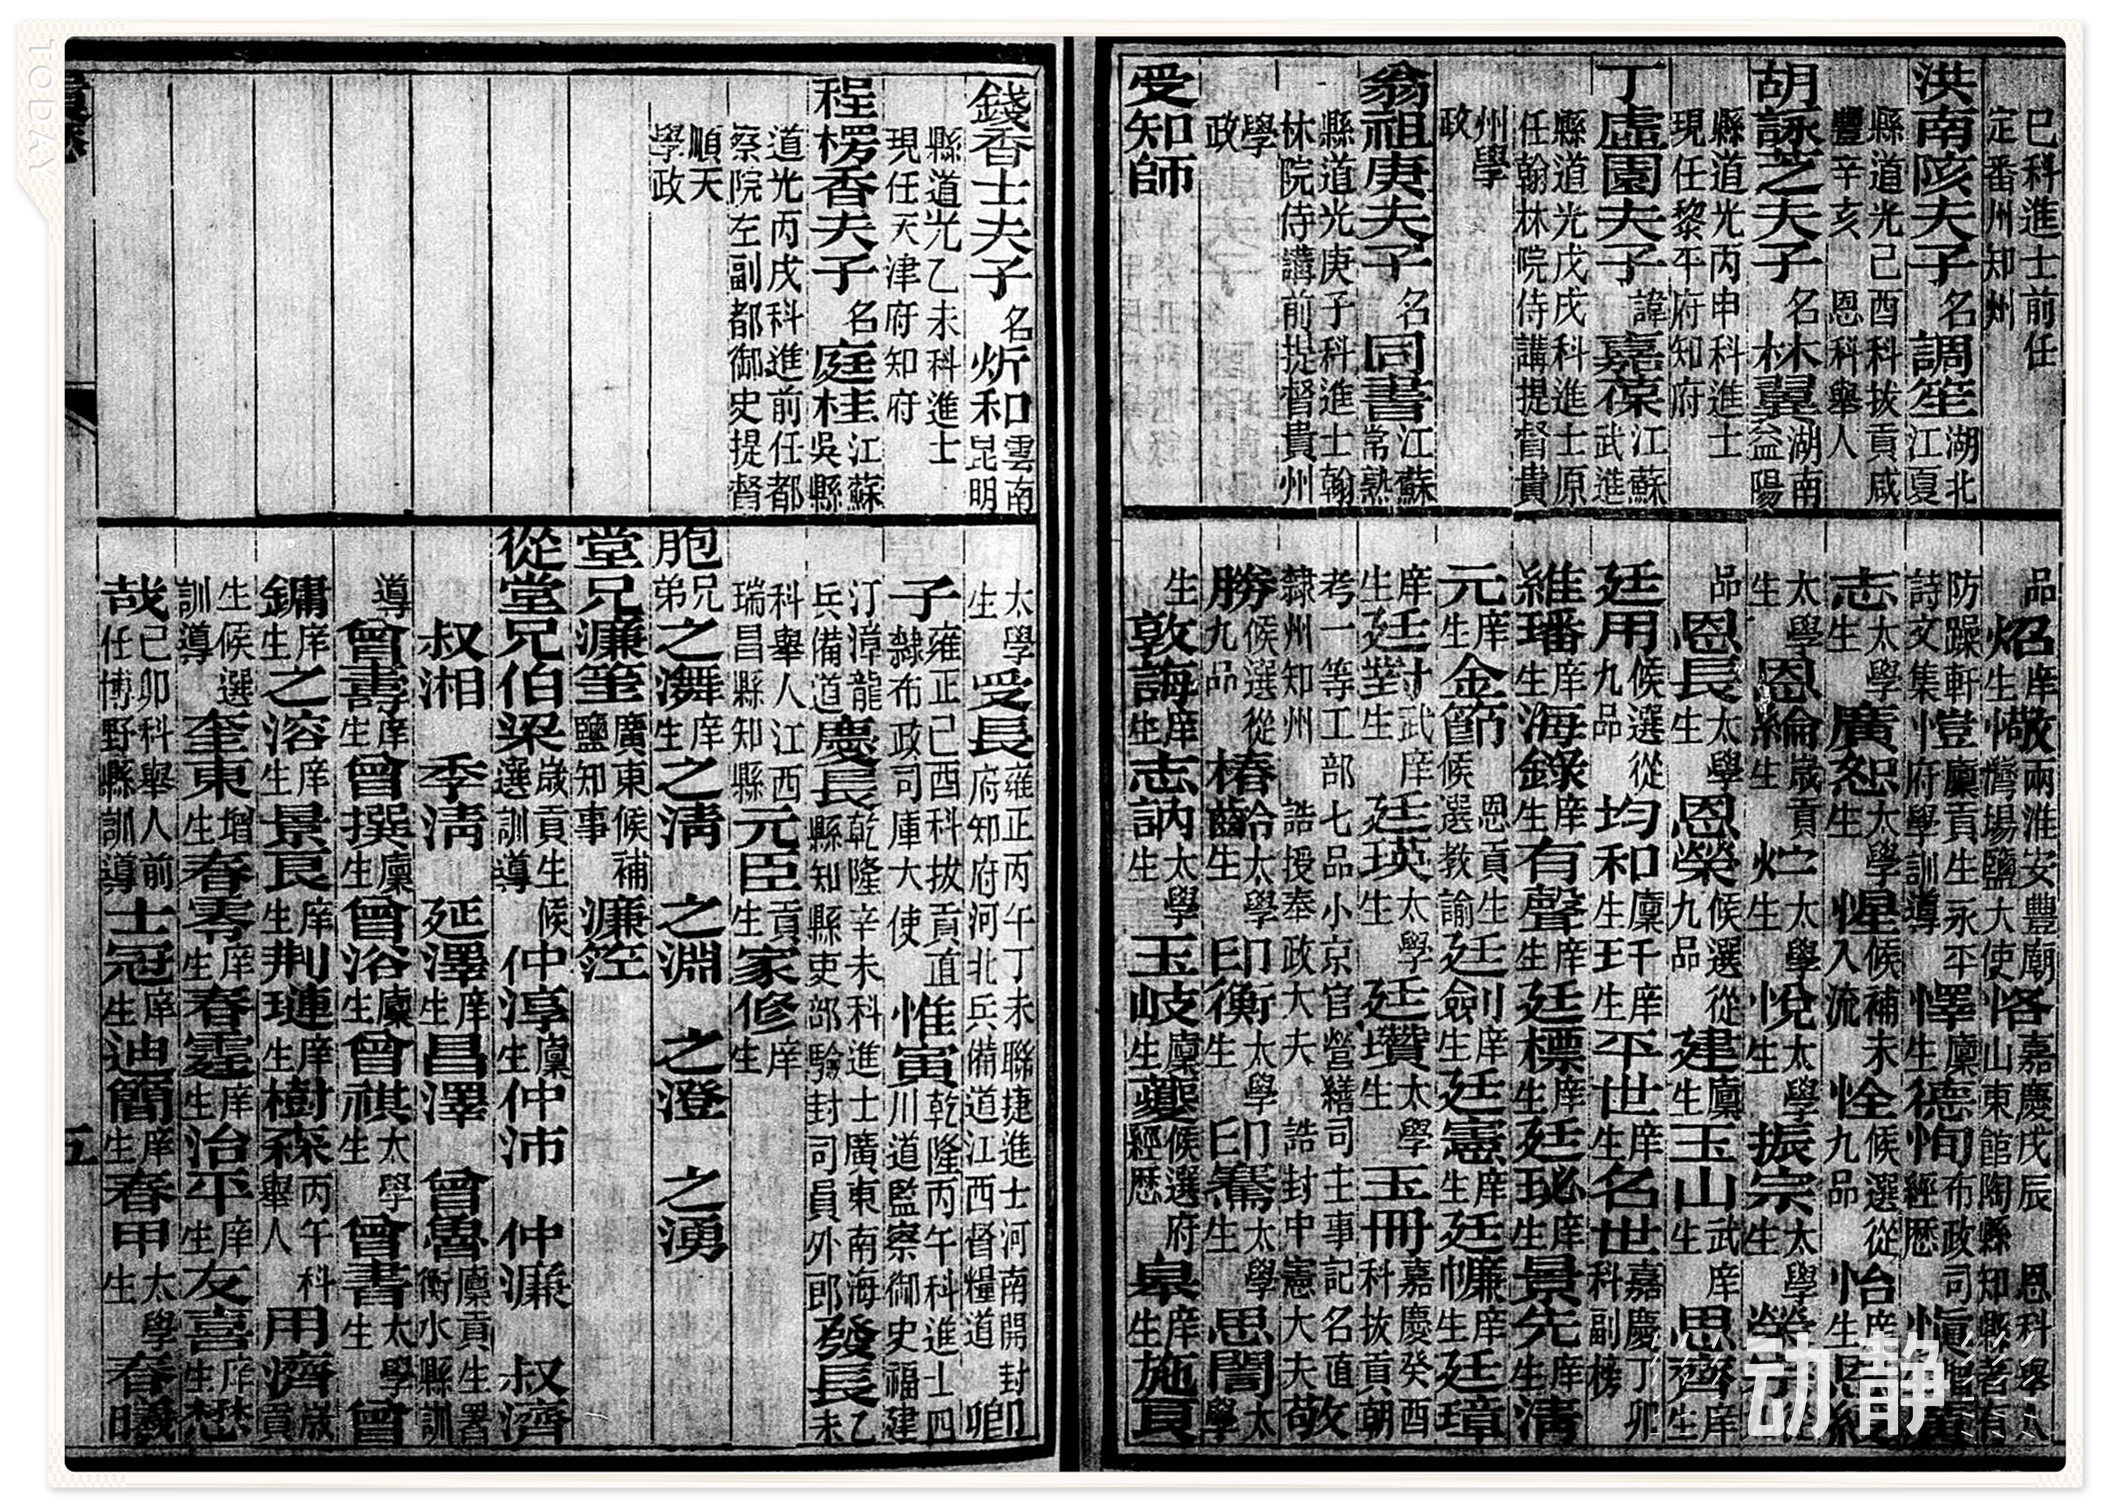 巳科進士前任
定番州知州
洪南陔夫子名調笙湖北江夏
縣道光己酉科拔貢咸
豐辛亥恩科舉人
胡詠芝夫子名林翼湖南益陽
縣道光丙申科進士
現任黎平府知府
丁虛園夫子諱嘉葆江蘇武進
縣道光戊戌科進士原
任翰林院侍講提督貴
州學
政
翁祖庚夫子名同書江蘇常熟
縣道光庚子科進士翰
林院侍講前提督貴州
學
政
受知師
品炤庠生敬兩淮安豐廟灣場鹽大使恪嘉慶戊辰恩科舉人山東館陶縣知縣著有
防躁軒詩文集愷廩貢生永平府學訓導懌廩生德恂布政司經歷慎
志太學生廣恕太學生惺候補未入流恮候選從九品怡庠生恩綬
太學生恩綸歲貢生悅太學生振宗太學生榮
品恩長太學生恩榮候選從九品建廩生玉山武庠生思齊庠生
廷用候選從九品均和廩生平世庠生名世嘉慶丁卯科副榜
維璠庠生海錄庠生有聲庠生廷標庠生廷珌庠生景先庠生清
元庠生金節恩貢生候選教諭廷劍庠生廷憲庠生廷㡘庠生廷璋
庠生廷對武庠生廷英太學生廷瓚太學生玉冊嘉慶癸酉科拔貢朝
考一等工部七品小京官營繕司主事記名直
隸州知州誥授奉政大夫誥封中憲大夫敬
勝候選從九品椿齡太學生印衡太學生印騫太學生思誾太學
生敦誨庠生志訥太學生玉岐廩生夔候選府經歷皋庠生施貢
錢香士夫子名炘和雲南昆明
縣道光乙未科進士
現任天津府知府
程楞香夫子名庭桂江蘇吳縣
道光丙戌科進士前任都
察院左副都御史提督
順天
學政
太學生受長雍正丙午丁未聯捷進士河南開封府知府河北兵備道江西督糧道卿
子雍正己酉科拔貢直隸布政司庫大使惟寅乾隆丙午科進士四川道監察御史福建
汀漳龍兵備道慶長乾隆辛未科進士廣東南海縣知縣吏部驗封司員外郎發長乙未
科舉人江西瑞昌縣知縣元臣貢生家修庠生
胞兄弟之濰庠生之清之淵之澄之湧
堂兄濂筌廣東候補鹽知事濂箜
從堂兄伯梁歲貢生候選訓導仲淳廩生仲沛仲濂叔濟
叔湘季清延澤庠生昌澤曾魯廩貢生署衡水縣訓
導曾壽庠生曾撰廩生曾浴廩生曾祺太學生曾書太學生曾
鏞庠生之溶庠生景良庠生荆璉庠生樹森丙午科舉人用濟歲貢
生候選訓導奎東增生春霖庠生春霆庠生治平庠生友喜庠生懋
哉己卯科舉人前任博野縣訓導士冠庠生迪簡庠生春甲太學生春曦
五
动静
TODAY